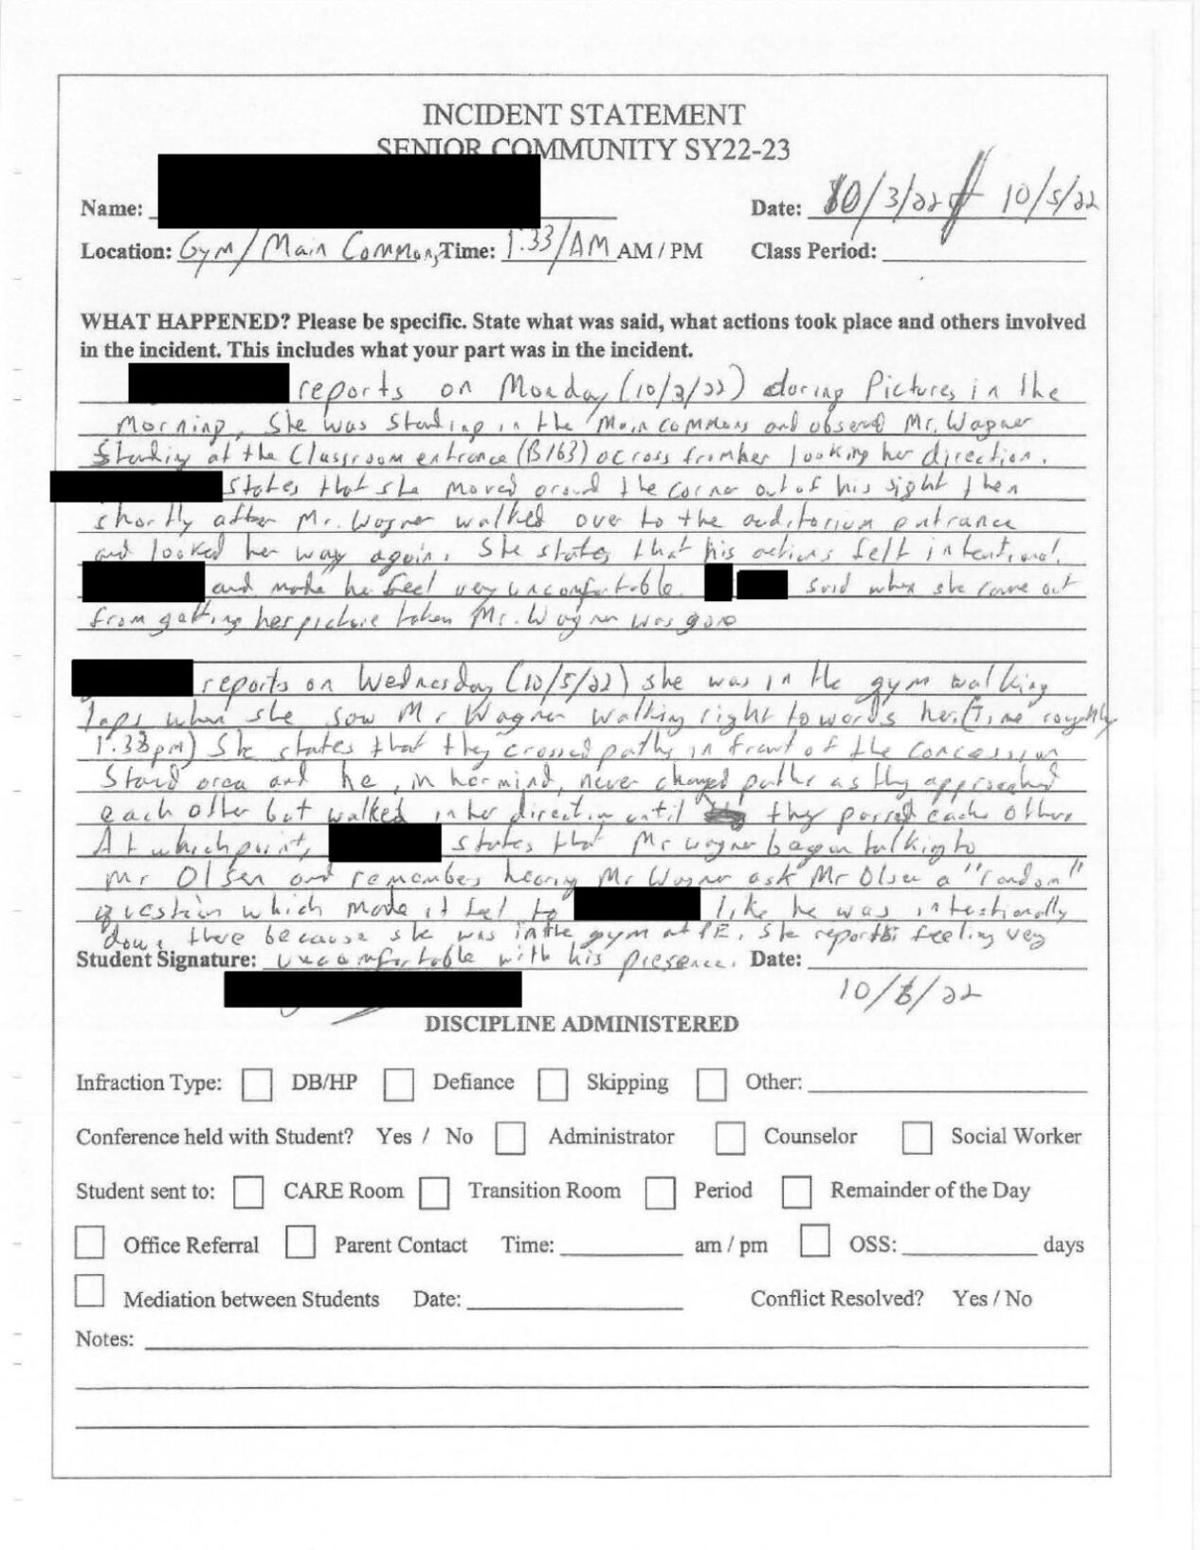 INCIDENT STATEMENT
SENIOR COMMUNITY SY22-23
Name:
Date: 10/3/22 & 10/5/22
Location: Gym/Main Commons Time: 1:33/AM AM / PM Class Period:
WHAT HAPPENED? Please be specific. State what was said, what actions took place and others involved
in the incident. This includes what your part was in the incident.
reports on Monday (10/3/22) during Pictures in the
Morning, She was standing in the Main commons and observed Mr. Wagner
Standing at the Classroom entrance (B163) across from her looking her direction.
states that she moved around the corner out of his sight then
shortly after Mr. Wagner walked over to the auditorium entrance
and looked her way again. She states that his actions felt intentional
and made he feel very uncomfortable. said when she came out
from getting her picture taken Mr. Wagner was gone
reports on Wednesday (10/5/22) she was in the gym walking
laps when she saw Mr Wagner walking right towards her. (Time roughly
1:33pm) She states that they crossed paths in front of the concession
Stand area and he, in her mind, never changed paths as they approached
each other but walked in her direction until they passed each other.
At which point, states that Mr Wagner began talking to
Mr Olsen and remembers hearing Mr Wagner ask Mr Olsen a "random"
question which made it feel to like he was intentionally
down there because she was in the gym at PE. She reports feeling very
Student Signature: uncomfortable with his presence. Date:
10/6/22
DISCIPLINE ADMINISTERED
Infraction Type: DB/HP Defiance Skipping Other:
Conference held with Student? Yes / No Administrator Counselor Social Worker
Student sent to: CARE Room Transition Room Period Remainder of the Day
Office Referral Parent Contact Time: am / pm OSS: days
Mediation between Students Date: Conflict Resolved? Yes / No
Notes: